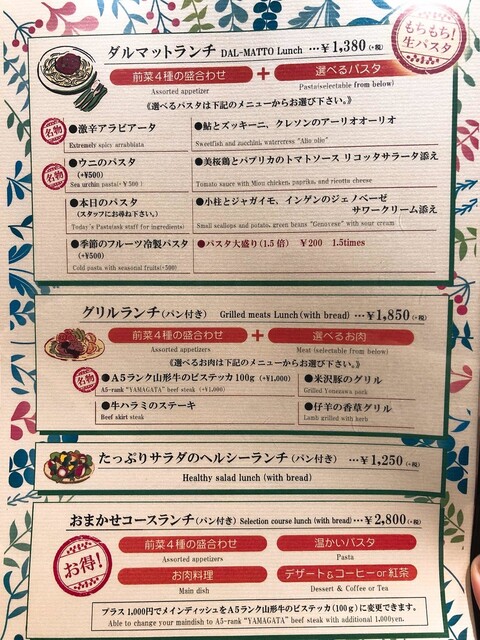 もちもち!
生パスタ
ダルマットランチ DAL-MATTO Lunch …¥1,380(+税)
前菜4種の盛合わせ + 選べるパスタ
Assorted appetizer Pasta(selectable from below)
《選べるパスタは下記のメニューからお選び下さい。》
名物 ●激辛アラビアータ
Extremely spicy arrabbiata
●鮎とズッキーニ、クレソンのアーリオオーリオ
Sweetfish and zucchini, watercress "Alio olio"
名物 ●ウニのパスタ
(+¥500)
Sea urchin pasta(+¥500)
●美桜鶏とパプリカのトマトソース リコッタサラータ添え
Tomato sauce with Miou chicken, paprika, and ricotta cheese
●本日のパスタ
(スタッフにお尋ね下さい。)
Today's Pasta(ask staff for ingredients)
●小柱とジャガイモ、インゲンのジェノベーゼ
サワークリーム添え
Small scallops and potato, green beans "Genovese" with sour cream
●季節のフルーツ冷製パスタ
(+¥500)
Cold pasta with seasonal fruits(+500)
●パスタ大盛り(1.5倍) ¥200 1.5times
グリルランチ(パン付き) Grilled meats Lunch(with bread) …¥1,850(+税)
前菜4種の盛合わせ + 選べるお肉
Assorted appetizers Meat (selectable from below)
《選べるお肉は下記のメニューからお選び下さい。》
名物 ●A5ランク山形牛のビステッカ100g(+¥1,000)
A5-rank "YAMAGATA" beef steak (+¥1,000)
●米沢豚のグリル
Grilled Yonezawa pork
●牛ハラミのステーキ
Beef skirt steak
●仔羊の香草グリル
Lamb grilled with herb
たっぷりサラダのヘルシーランチ(パン付き) …¥1,250(+税)
Healthy salad lunch (with bread)
おまかせコースランチ(パン付き) Selection course lunch (with bread) …¥2,800(+税)
お得!
前菜4種の盛合わせ 温かいパスタ
Assorted appetizers Pasta
お肉料理 デザート&コーヒーor紅茶
Main dish Dessert & Coffee or Tea
プラス1,000円でメインディッシュをA5ランク山形牛のビステッカ(100g)に変更できます。
Able to change your maindish to A5-rank "YAMAGATA" beef steak with additional 1,000yen.